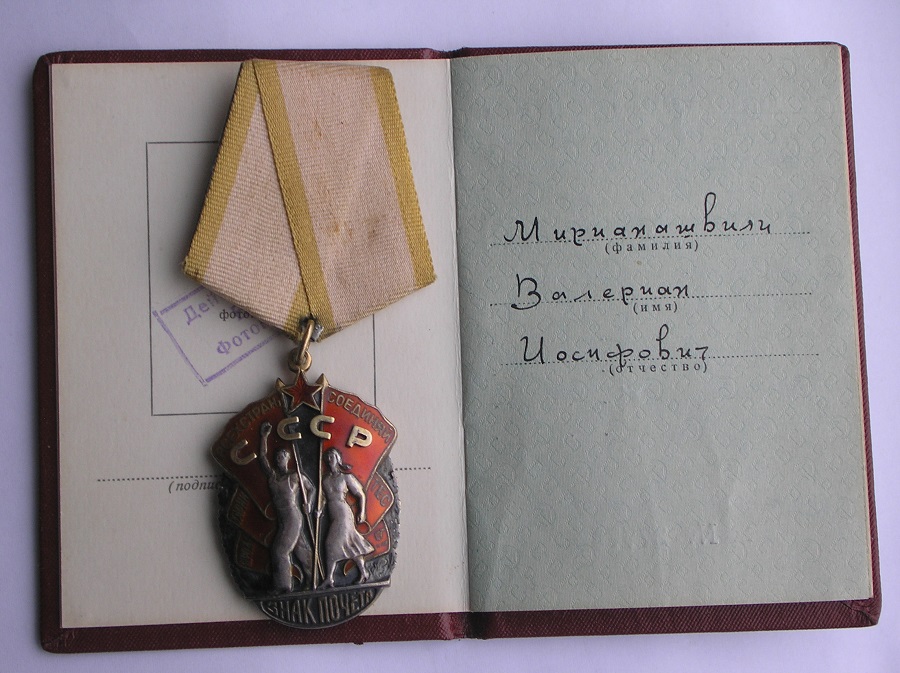 Дей
фото
Фото
(подпи
СТРАН СОЕДИНЯЙ
СССР
ЗНАК ПОЧЕТА
Мирианашвили
(фамилия)
Валериан
(имя)
Иосифович
(отчество)